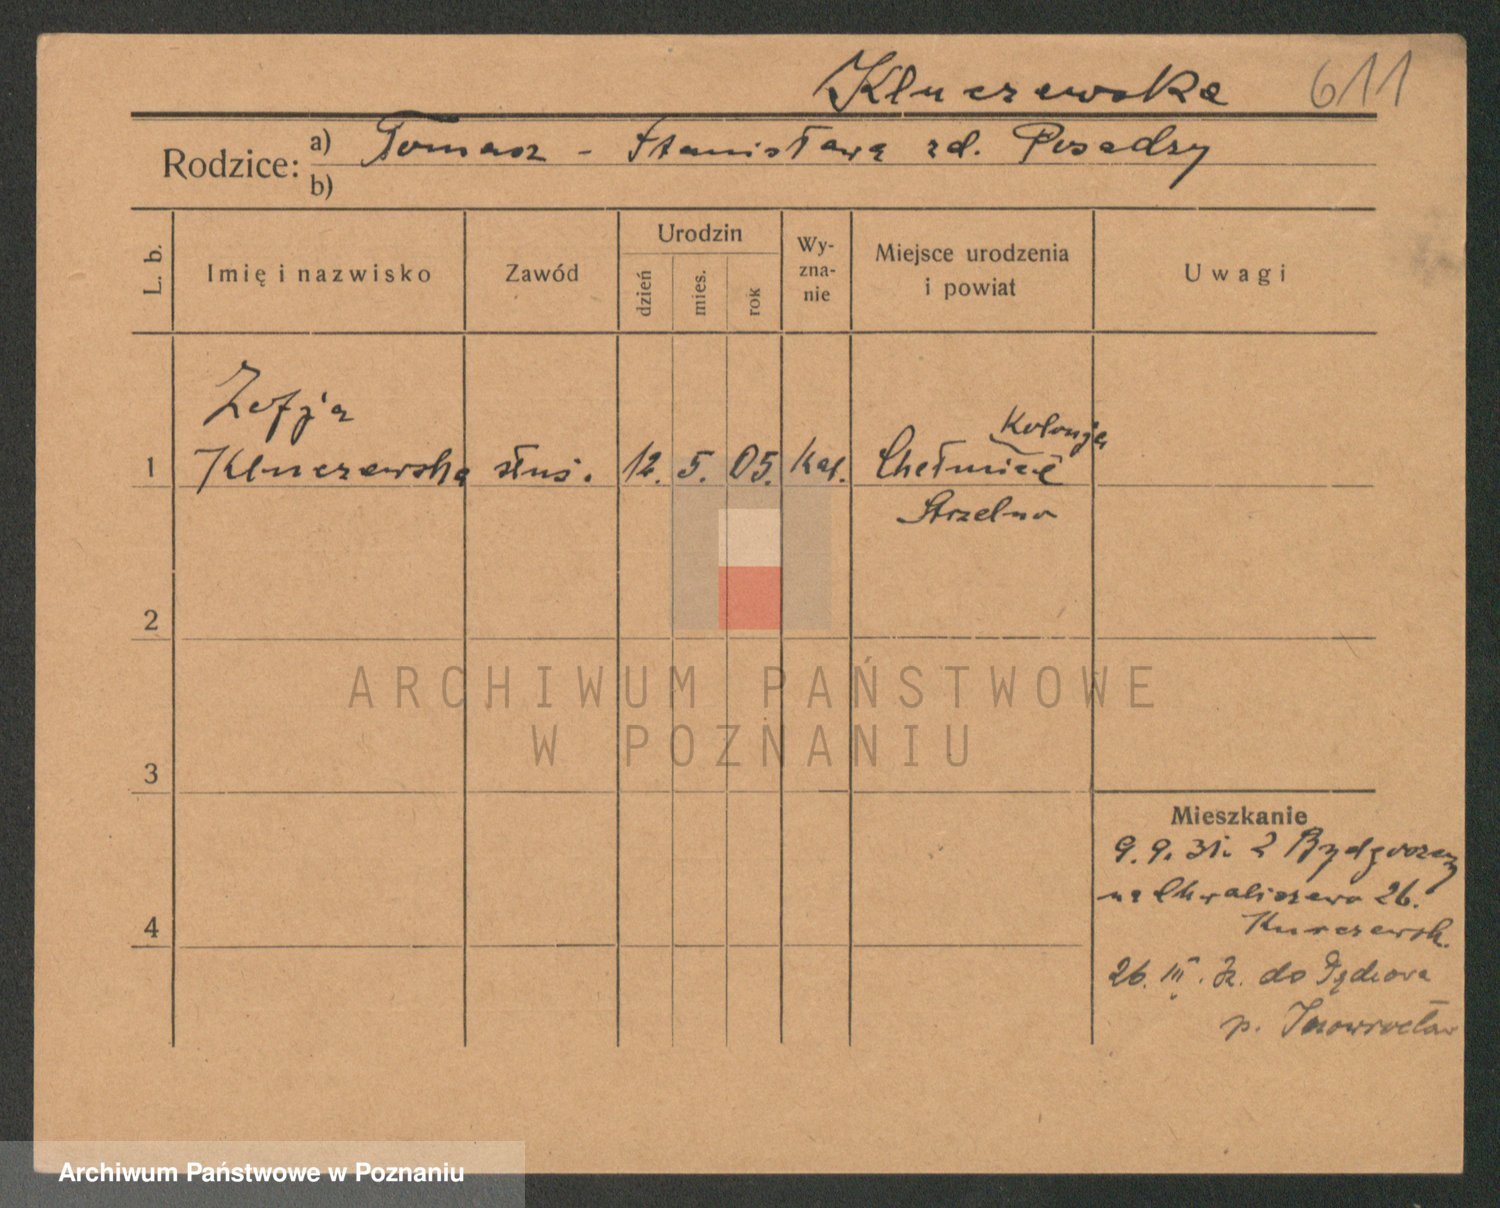 Kluczewska 611
Rodzice: a) Tomasz - Stanisława zd. Posadzy
b)
L. b.
Imię i nazwisko
Zawód
Urodzin
dzień
mies.
rok
Wy-
zna-
nie
Miejsce urodzenia
i powiat
Uwagi
Zofja
Kolonja
1 Kluczewska służ. 12. 5. 05. Kat. Chełmice
Strzelno
2
ARCHIWUM PAŃSTWOWE
W POZNANIU
3
Mieszkanie
9. 9. 31. z Bydgoszczy
na Chwaliszewo 26.
4
26. III. 32. do
p. Inowrocław
Archiwum Państwowe w Poznaniu